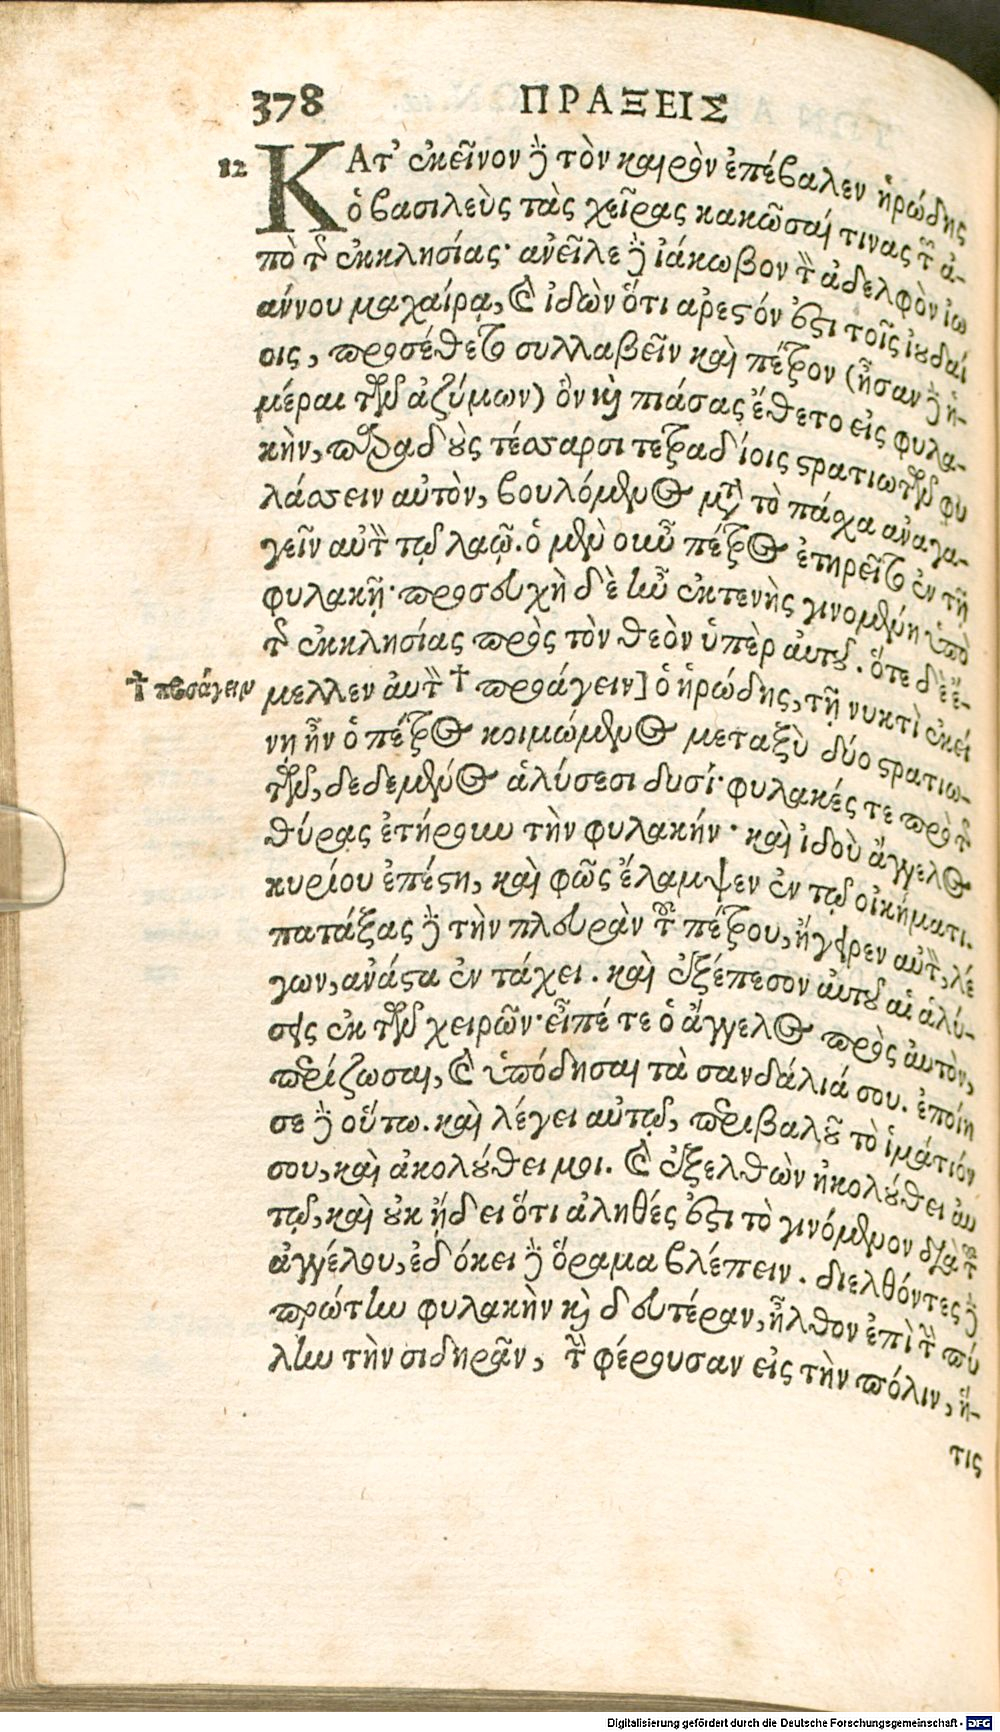 378 ΠΡΑΞΕΙΣ
12 ΚΑτ' ἐκεῖνον δὲ τὸν καιρὸν ἐπέβαλεν ἡρώδης
ὁ βασιλεὺς τὰς χεῖρας κακῶσαί τινας τῶν ἀ-
πὸ τῆς ἐκκλησίας· ἀνεῖλε δὲ ἰάκωβον τὸν ἀδελφὸν ἰω
άννου μαχαίρᾳ, καὶ ἰδὼν ὅτι ἀρεστόν ἐστι τοῖς ἰουδαί
οις, προσέθετο συλλαβεῖν καὶ πέτρον (ἦσαν δὲ ἡ-
μέραι τῶν ἀζύμων) ὃν καὶ πιάσας ἔθετο εἰς φυλα-
κὴν, παραδοὺς τέσσαρσι τετραδίοις στρατιωτῶν φυ
λάσσειν αὐτὸν, βουλόμενος μετὰ τὸ πάσχα ἀναγα-
γεῖν αὐτὸν τῷ λαῷ. ὁ μὲν οὖν πέτρος ἐτηρεῖτο ἐν τῇ
φυλακῇ· προσευχὴ δὲ ἦν ἐκτενὴς γινομένη ὑπὸ
τῆς ἐκκλησίας πρὸς τὸν θεὸν ὑπὲρ αὐτοῦ. ὅτε δὲ ἔ-
† προσάγειν μελλεν αὐτὸν † προάγειν] ὁ ἡρώδης, τῇ νυκτὶ ἐκεί
νῃ ἦν ὁ πέτρος κοιμώμενος μεταξὺ δύο στρατιω-
τῶν, δεδεμένος ἁλύσεσι δυσί· φυλακές τε πρὸ τῆς
θύρας ἐτήρουν τὴν φυλακήν· καὶ ἰδοὺ ἄγγελος
κυρίου ἐπέστη, καὶ φῶς ἔλαμψεν ἐν τῷ οἰκήματι.
πατάξας δὲ τὴν πλευρὰν τοῦ πέτρου, ἤγειρεν αὐτὸν, λέ
γων, ἀνάστα ἐν τάχει. καὶ ἐξέπεσον αὐτοῦ αἱ ἁλύ-
σεις ἐκ τῶν χειρῶν· εἶπέ τε ὁ ἄγγελος πρὸς αὐτὸν,
περίζωσαι, καὶ ὑπόδησαι τὰ σανδάλιά σου. ἐποίη
σε δὲ οὕτω. καὶ λέγει αὐτῷ, περιβαλοῦ τὸ ἱμάτιόν
σου, καὶ ἀκολούθει μοι. καὶ ἐξελθὼν ἠκολούθει αὐ
τῷ, καὶ οὐκ ᾔδει ὅτι ἀληθές ἐστι τὸ γινόμενον διὰ τοῦ
ἀγγέλου, ἐδόκει δὲ ὅραμα βλέπειν. διελθόντες δὲ
πρώτην φυλακὴν καὶ δευτέραν, ἦλθον ἐπὶ τὴν πύ
λην τὴν σιδηρᾶν, τὴν φέρουσαν εἰς τὴν πόλιν, ἥ-
τις
Digitalisierung gefördert durch die Deutsche Forschungsgemeinschaft - DFG